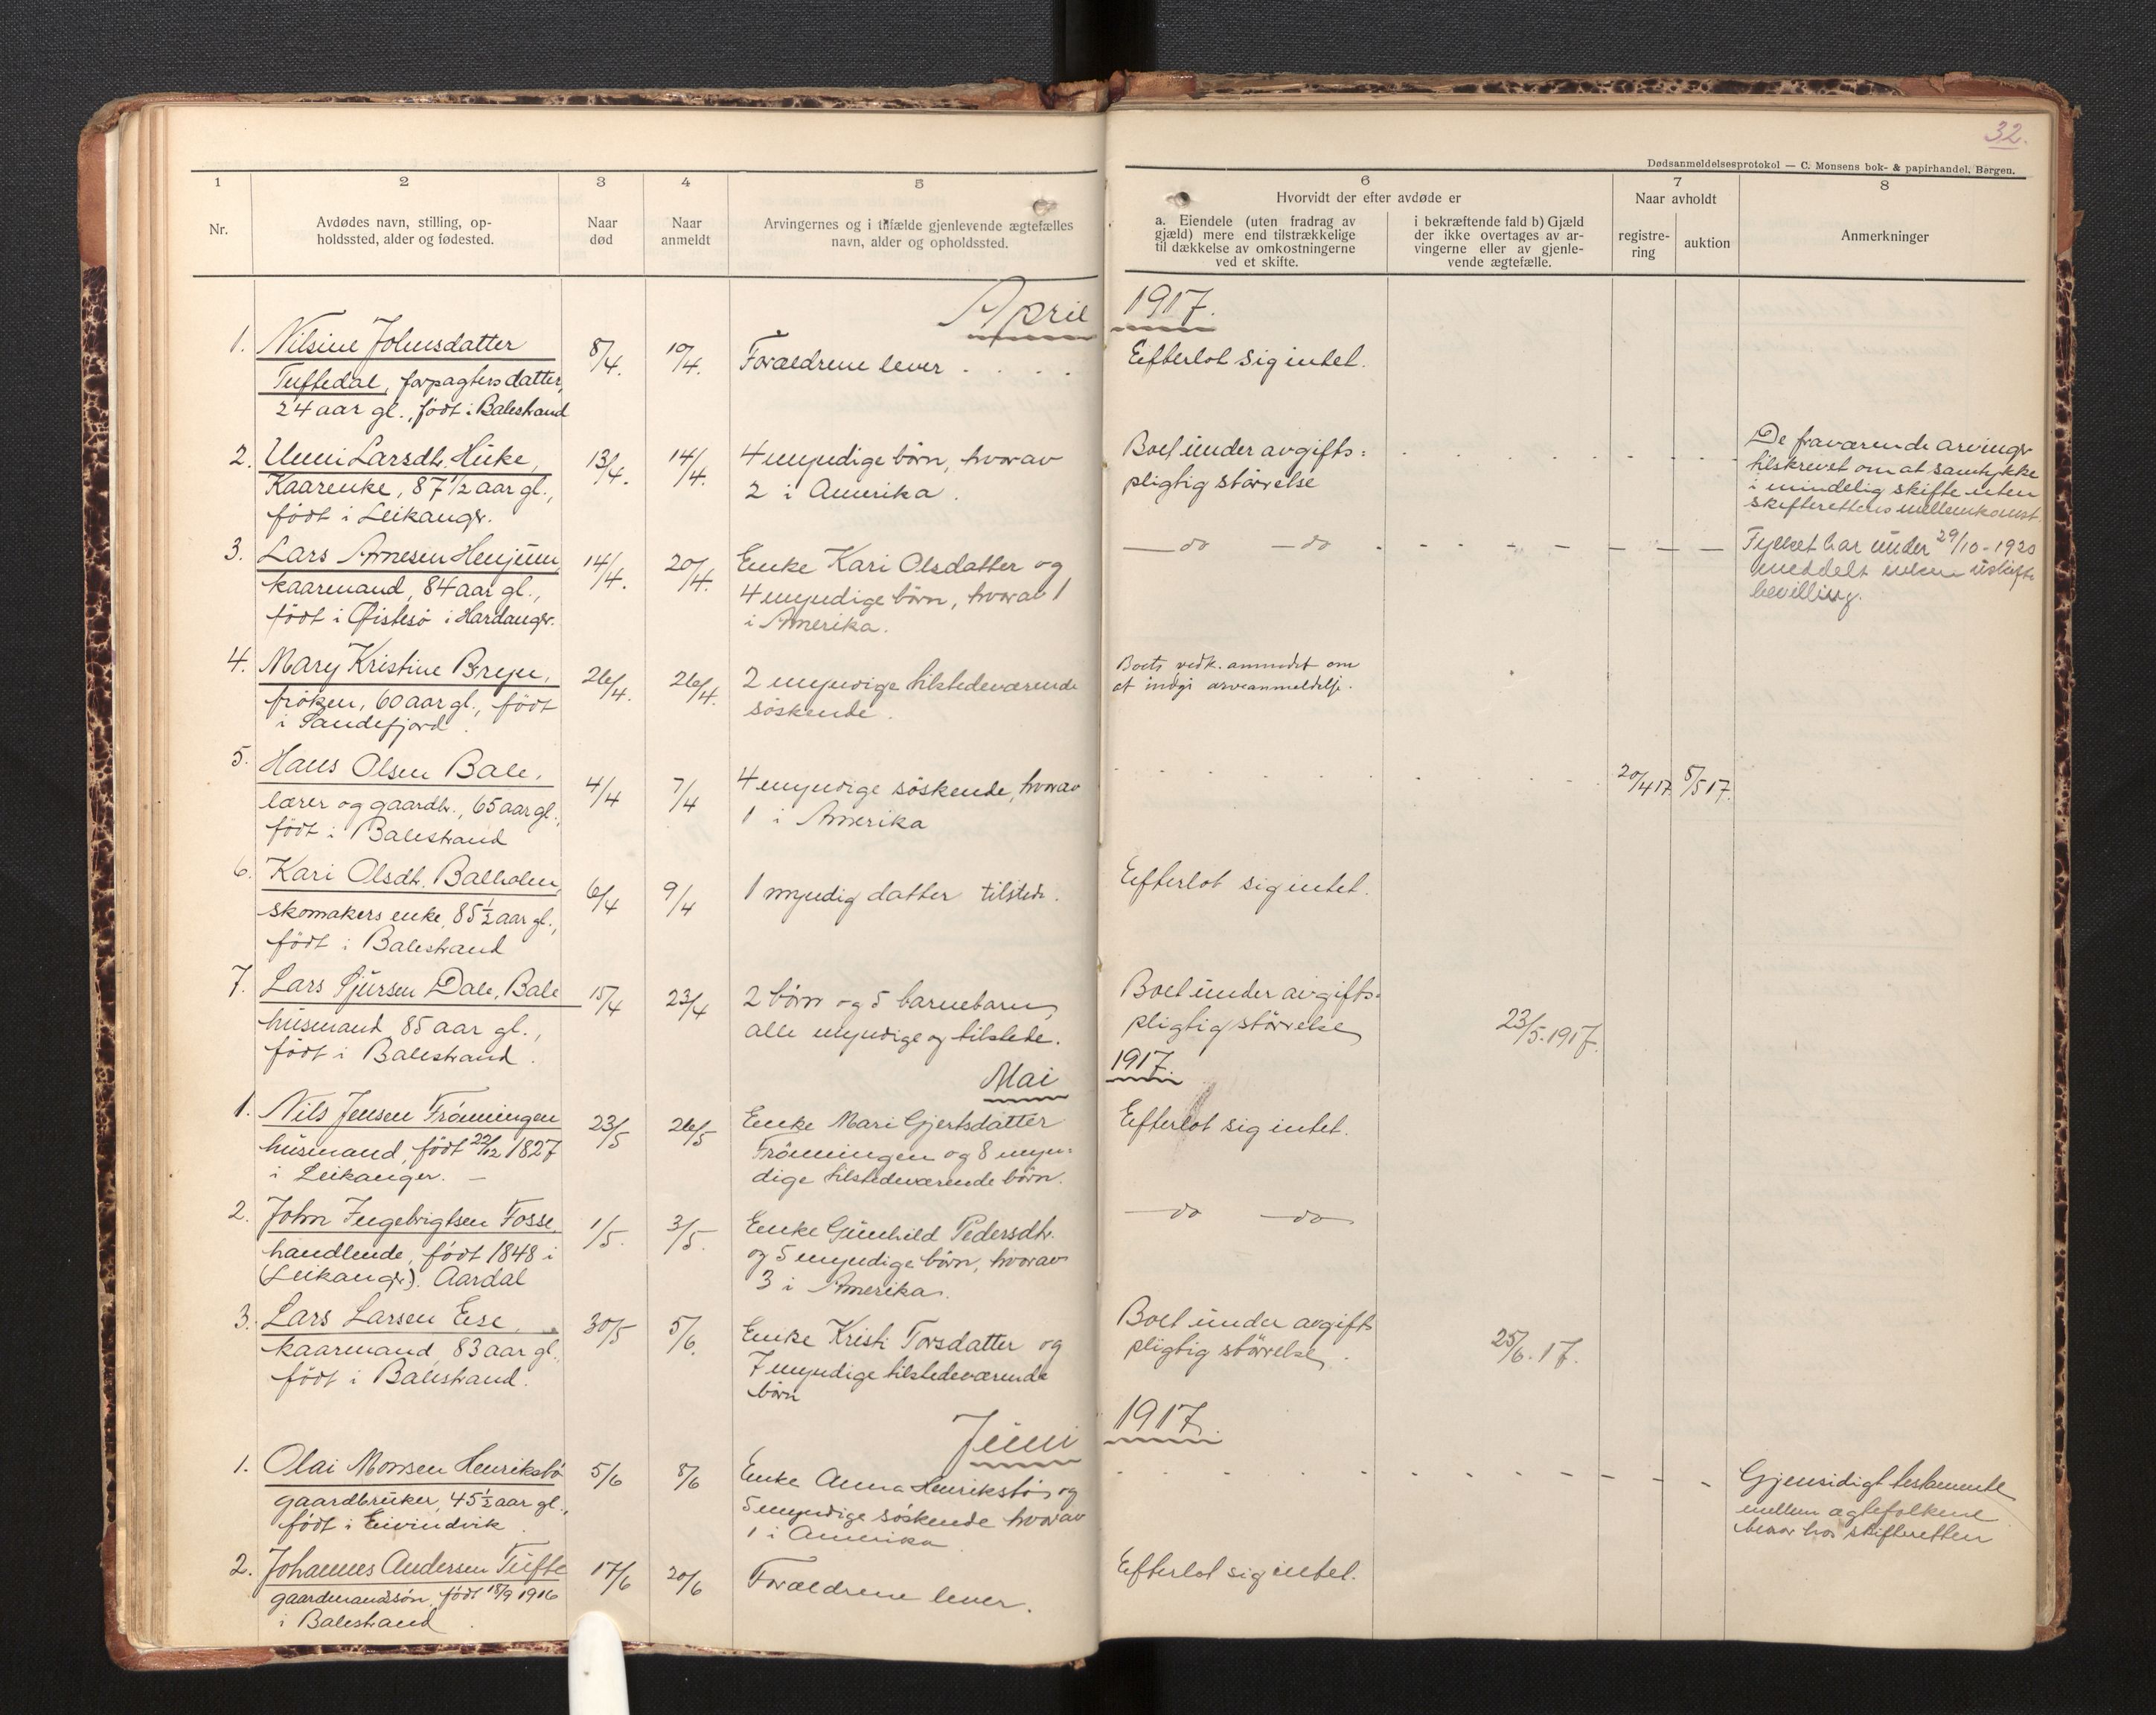 32.
Dødsanmeldelsesprotokol — C. Monsens bok- & papirhandel, Bergen.
1 2 3 4 5 6 7 8
Nr.
Avdødes navn, stilling, op-
holdssted, alder og fødested.
Naar
død
Naar
anmeldt
Arvingernes og i tilfælde gjenlevende ægtefælles
navn, alder og opholdssted.
Hvorvidt der efter avdøde er
a. Eiendele (uten fradrag av
gjæld) mere end tilstrækkelige
til dækkelse av omkostningerne
ved et skifte.
i bekræftende fald b) Gjæld
der ikke overtages av ar-
vingerne eller av gjenle-
vende ægtefælle.
Naar avholdt
registre-
ring
auktion
Anmerkninger
April 1917.
1. Nilsine Johnsdatter
Tuftedal, forpagters datter,
24 aar gl., født i Balestrand
8/4. 10/4.
Forældrene lever . . . .
Efterlot sig intet.
2. Unni Larsdtr. Huke,
Kaarenke, 87 1/2 aar gl.,
født i Leikangr.
13/4. 14/4.
4 myndige børn, hvorav
2 i Amerika.
Boet under avgifts=
pligtig størrelse
De fraværende arvinger
tilskrevet om at samtykke
i mindelig skifte uten
skifterettens mellemkomst
3. Lars Arnesen Henjum,
kaarmand, 84 aar gl.,
født i Øistesø i Hardangr.
14/4. 20/4.
Enke Kari Olsdatter og
4 myndige børn, hvorav 1
i Amerika.
— do — do
Fylket har under 29/10-1920
meddelt enken uskifte
bevilling.
4. Mary Kristine Breje,
frøken, 60 aar gl., født
i Sandefjord.
26/4. 26/4.
2 myndige tilstedeværende
søskende.
Boets vedk. anmodet om
at indgi arveanmeldelse.
5. Hans Olsen Bale,
lærer og gaardbr., 65 aar gl.,
født i Balestrand
4/4 7/4
4 myndige søskende, hvorav
1 i Amerika
20/4 17. 5/5 17.
6. Kari Olsdtr. Balholm,
skomakers enke, 85 1/2 aar gl.,
født i Balestrand
6/4 9/4
1 myndig datter tilstede.
Efterlot sig intet.
7. Lars Sjursen Dale, Bale
husmand, 85 aar gl.,
født i Balestrand.
15/4 23/4
2 børn og 5 barnebarn,
alle myndige og tilstede.
Boet under avgifts=
pligtig størrelse
23/5. 1917.
Mai 1917.
1. Nils Jensen Frønningen
husmand, født 22/12 1827
i Leikanger. —
23/5 26/5
Enke Mari Gjertsdatter
Frønningen og 8 myn=
dige tilstedeværende børn.
Efterlot sig intet.
2. John Ingebrigtsen Fosse,
handlende, født 1848 i
(Leikangr). Aardal
1/5. 3/5.
Enke Gunhild Pedersdtr.
og 5 myndige børn, hvorav
3 i Amerika.
— do — do —
3. Lars Larsen Ese,
kaarmand, 83 aar gl.,
født i Balestrand.
30/5 5/6.
Enke Kristi Torsdatter og
7 myndige tilstedeværende
børn
Boet under avgifts
pligtig størrelse.
25/6. 17.
Juni 1917.
1. Olai Monsen Henriksbø
gaardbruker, 45 1/2 aar gl.,
født i Eivindvik
5/6 8/6
Enke Anna Henriksbø, og
5 myndige søskende hvorav
1 i Amerika.
Gjensidigt testamente
mellem ægtefolkene
beror hos skifteretten
2. Johannes Andersen Tufte
gaardmandssøn, født 18/9 1916
i Balestrand.
17/6 20/6
Forældrene lever.
Efterlot sig intet.